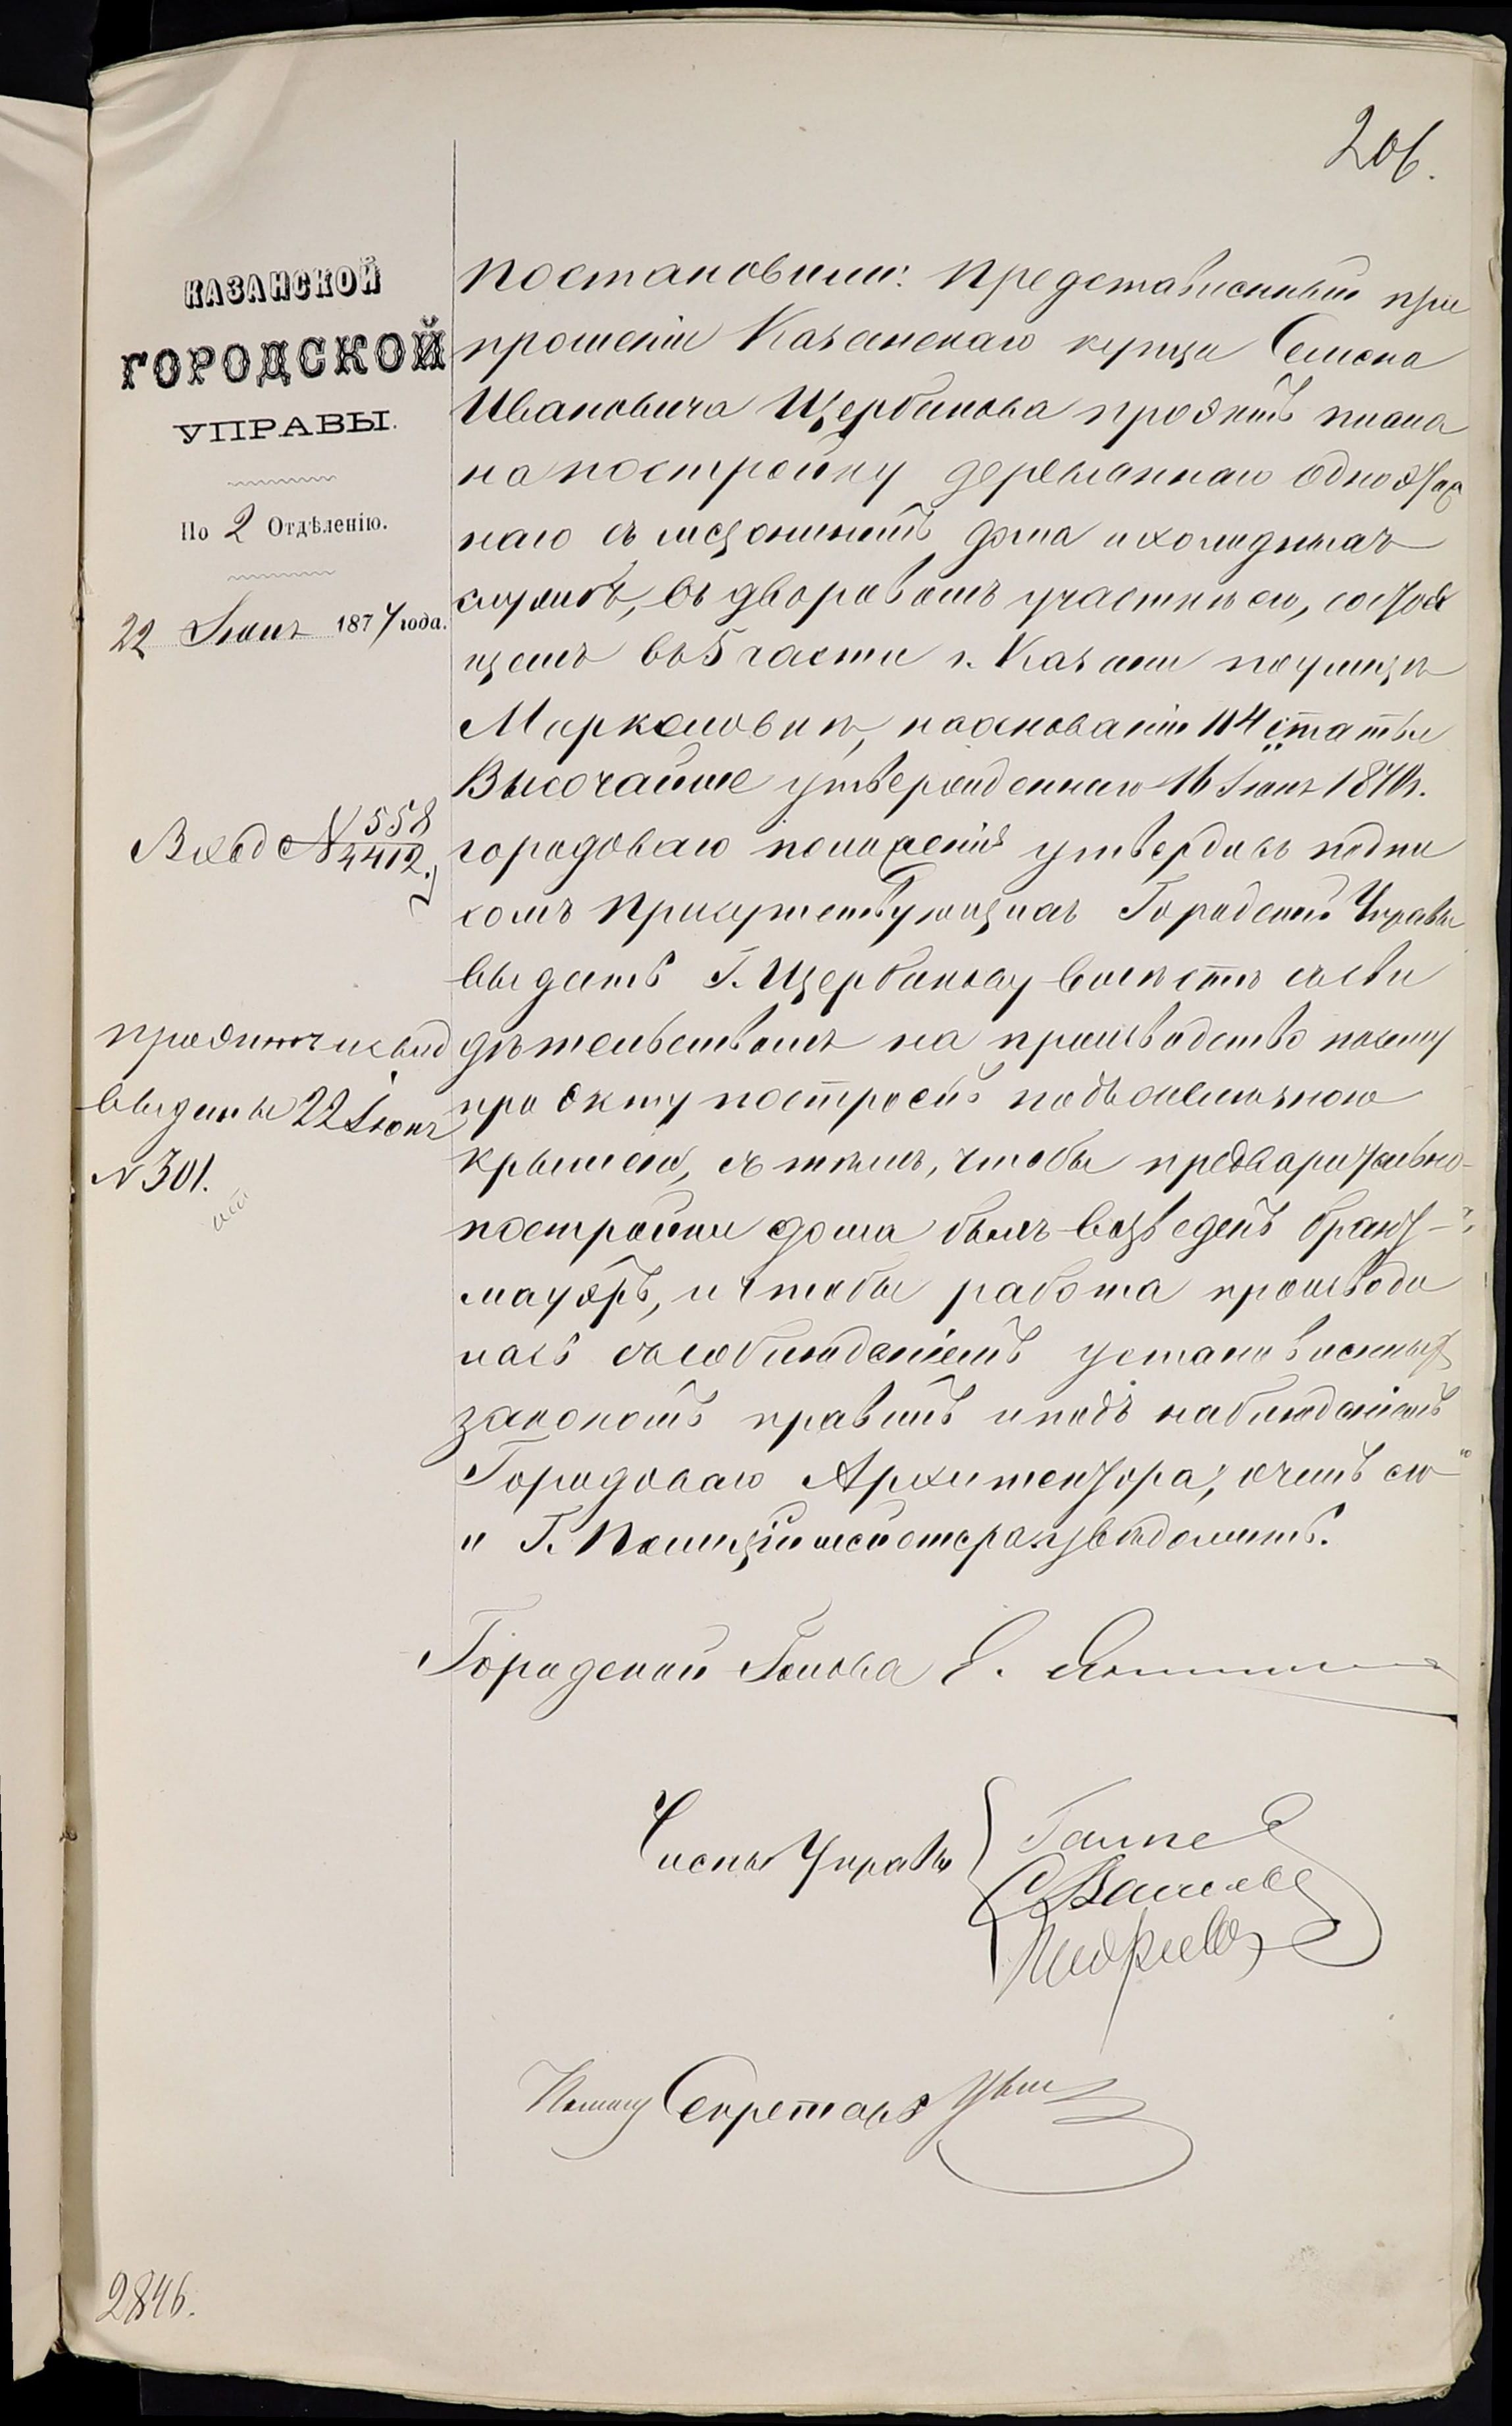 206.
КАЗАНСКОЙ
ГОРОДСКОЙ
УПРАВЫ.
По 2 Отдѣленію.
22 Іюня 1874 года.
Вход № 558
4412.
проэктъ и свид
выданы 22 Іюня
№ 301.
постановили: Представленный при
прошеніи Казанскаго купца Семена
Ивановича Щербакова проэктъ плана
на постройку деревяннаго одноэтаж
наго съ мезониномъ дома и холодныхъ
службъ, въ дворовомъ участкѣ его, состоя
щемъ въ 5 части г. Казани по улицѣ
на основаніи 114 статьи
Высочайше утвержденнаго 16 Іюня 1870 г.
городоваго положенія утвердивъ подпи
сомъ Присутствующихъ Городской Управы
выдать Г. Щербакову вмѣстѣ съ сви
дѣтельствомъ на производство по сему
проэкту построекъ подъ желѣзною
крышею, съ тѣмъ, чтобы предварительно
постройки дома былъ возведенъ бранд-
мауэръ, и чтобы работа производи
лась съ соблюденіемъ установленныхъ
закономъ правилъ и подъ наблюденіемъ
Городоваго Архитектора, о чемъ его
и Г. Полиціймейстера увѣдомить.
Городской Голова Е.
Члены Управы
Секретаря
2846.